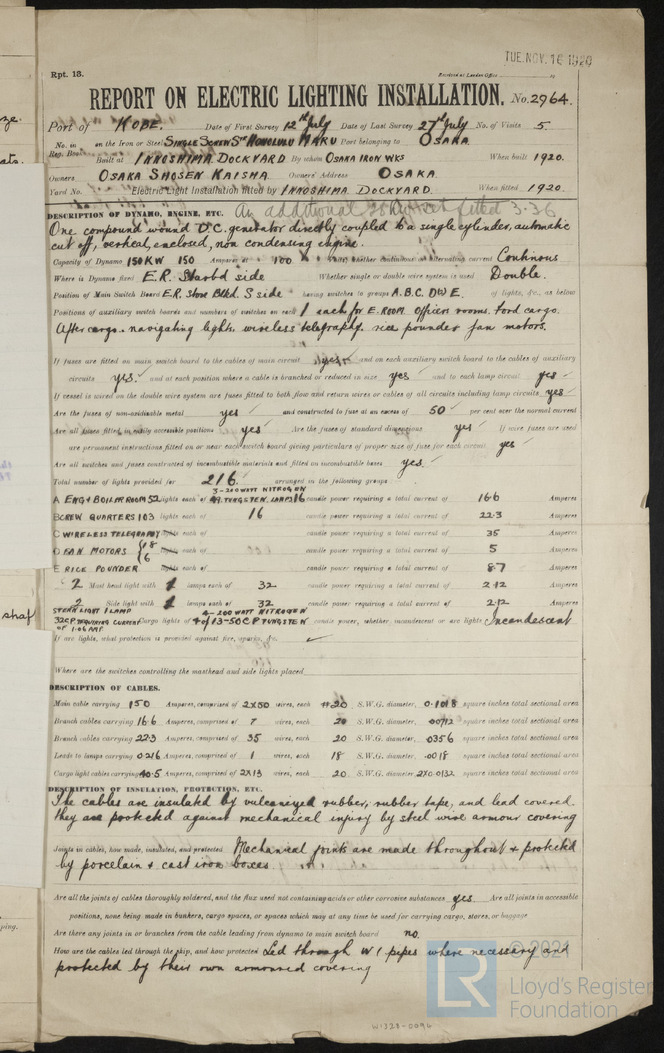 TUE. NOV. 16 1920
Rpt. 13.
Received at London Office
REPORT ON ELECTRIC LIGHTING INSTALLATION. No. 2964.
Port of KOBE. Date of First Survey 12th July Date of Last Survey 27th July No. of Visits 5.
No. in Reg. Book on the Iron or Steel SINGLE SCREW Sr HONOLULU MARU Port belonging to OSAKA
Built at INNOSHIMA DOCKYARD By whom OSAKA IRON WKS When built 1920.
Owners OSAKA SHOSEN KAISHA Owners' Address OSAKA
Yard No. Electric Light Installation fitted by INNOSHIMA DOCKYARD. When fitted 1920.
DESCRIPTION OF DYNAMO, ENGINE, ETC. An additional fitted 3.36
One compound wound D.C. generator directly coupled to a single cylinder, automatic
cut off, vertical, enclosed, non condensing engine.
Capacity of Dynamo 150KW 150 Amperes at 100 Volts, whether continuous or alternating current Continous
Where is Dynamo fixed E.R. Starbd side Whether single or double wire system is used Double.
Position of Main Switch Board E.R. Stbd side having switches to groups A.B.C. D & E. of lights, &c., as below
Positions of auxiliary switch boards and numbers of switches on each 1 each for E.ROOM. Officers rooms. Ford cargo.
After cargo. navigating lights. wireless telegraphy. rice pounder fan motors.
If fuses are fitted on main switch board to the cables of main circuit yes and on each auxiliary switch board to the cables of auxiliary
circuits yes. and at each position where a cable is branched or reduced in size yes and to each lamp circuit yes
If vessel is wired on the double wire system are fuses fitted to both flow and return wires or cables of all circuits including lamp circuits yes
Are the fuses of non-oxidizable metal yes and constructed to fuse at an excess of 50 per cent over the normal current
Are all fuses fitted in easily accessible positions yes Are the fuses of standard dimensions yes If wire fuses are used
are permanent instructions fitted on or near each switch board giving particulars of proper size of fuse for each circuit yes
Are all switches and fuses constructed of incombustible materials and fitted on incombustible bases yes.
Total number of lights provided for 216. arranged in the following groups
3-200 WATT NITROGEN
A ENG & BOILER ROOM 52 lights each of 49 TUNGSTEN LAMP 16 candle power requiring a total current of 16.6 Amperes
B CREW QUARTERS 103 lights each of 16 candle power requiring a total current of 22.3 Amperes
C WIRELESS TELEGRAPHY lights each of candle power requiring a total current of 35 Amperes
D FAN MOTORS 18 6 lights each of candle power requiring a total current of 5 Amperes
E RICE POUNDER lights each of candle power requiring a total current of 8.7 Amperes
2 Mast head light with 1 lamps each of 32 candle power requiring a total current of 2.12 Amperes
2 Side light with 1 lamps each of 32 candle power requiring a total current of 2.12 Amperes
STERN LIGHT LAMP 4-200 WATT NITROGEN
32CP REQUIRING CURRENT OF 1.06 AMP Cargo lights of 4 of 13-50 CP TUNGSTEN candle power, whether incandescent or arc lights Incandescent
If arc lights, what protection is provided against fire, sparks, &c
Where are the switches controlling the masthead and side lights placed
DESCRIPTION OF CABLES.
Main cable carrying 150 Amperes, comprised of 2X50 wires, each #20 S.W.G. diameter, 0.1018 square inches total sectional area
Branch cables carrying 16.6 Amperes, comprised of 7 wires, each 20 S.W.G. diameter, .00712 square inches total sectional area
Branch cables carrying 22.3 Amperes, comprised of 35 wires, each 20 S.W.G. diameter, .0356 square inches total sectional area
Leads to lamps carrying 0.216 Amperes, comprised of 1 wires, each 18 S.W.G. diameter, .0018 square inches total sectional area
Cargo light cables carrying 40.5 Amperes, comprised of 2X13 wires, each 20 S.W.G. diameter, 2X0.0132 square inches total sectional area
DESCRIPTION OF INSULATION, PROTECTION, ETC.
The cables are insulated by vulcanized rubber, rubber tape, and lead covered.
they are protected against mechanical injury by steel wire armour covering
Joints in cables, how made, insulated, and protected Mechanical joints are made throughout & protected
by porcelain & cast iron boxes.
Are all the joints of cables thoroughly soldered, and the flux used not containing acids or other corrosive substances yes. Are all joints in accessible
positions, none being made in bunkers, cargo spaces, or spaces which may at any time be used for carrying cargo, stores, or baggage
Are there any joints in or branches from the cable leading from dynamo to main switch board no.
How are the cables led through the ship, and how protected Led through W I pipes where necessary and
protected by their own armoured covering
© 2021
LR
Lloyd's Register
Foundation
W1328-0096